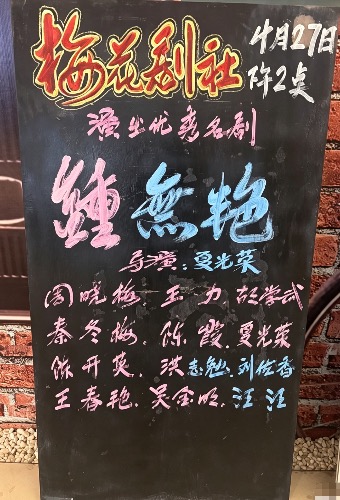 梅花剧社
4月27日
下午2点
演出优秀名剧
鍾無艳
导演:夏光荣
周晓梅 王力 胡学武
秦冬梅.陈霞.夏光荣
陈开英.洪志勉.刘佐香
王春艳.吴金明.汪江